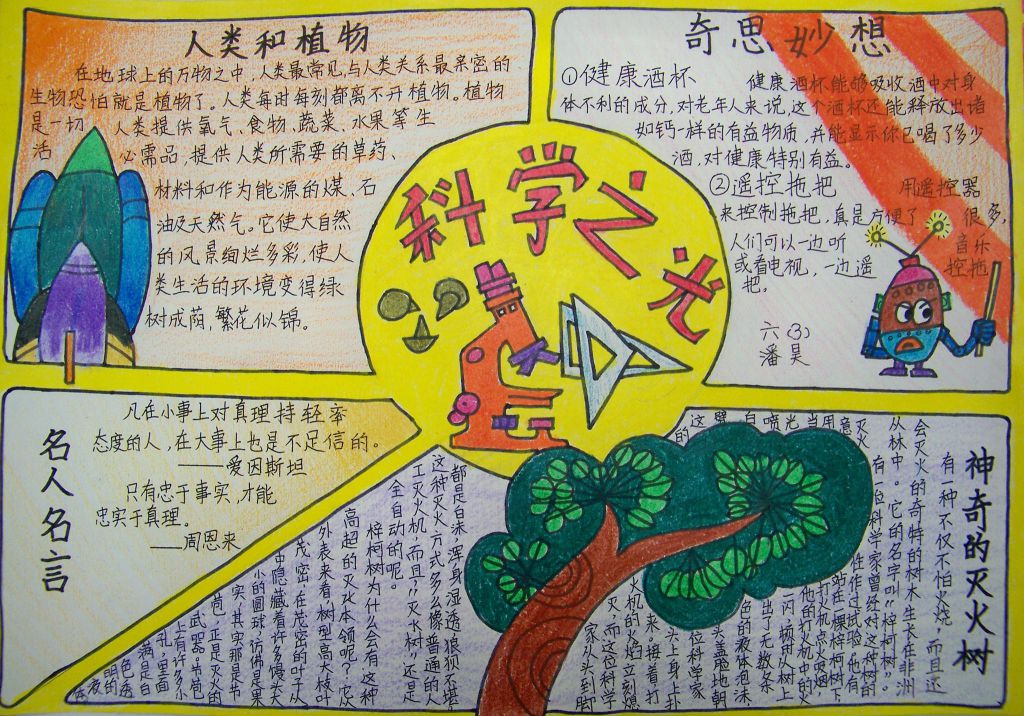 科学之光
人类和植物
在地球上的万物之中，人类最常见，与人类关系最亲密的
生物恐怕就是植物了。人类每时每刻都离不开植物。植物
是一切 人类提供氧气、食物、蔬菜、水果等生
活 必需品，提供人类所需要的草药、
材料和作为能源的煤、石
油及天然气。它使大自然
的风景绚烂多彩，使人
类生活的环境变得绿
树成荫，繁花似锦。
奇思妙想
①健康酒杯 健康酒杯能够吸收酒中对身
体不利的成分，对老年人来说，这个酒杯还能释放出诸
如钙一样的有益物质，并能显示你已喝了多少
酒，对健康特别有益。
②遥控拖把 用遥控器
来控制拖把，真是方便了 很多，
人们可以一边听 音乐
或看电视，一边遥 控拖
把。
六(3)
潘昊
名人名言
凡在小事上对真理持轻率
态度的人，在大事上也是不足信的。
——爱因斯坦
只有忠于事实，才能
忠实于真理。
——周恩来
神奇的灭火树
有一种不仅不怕火烧，而且还
会灭火的奇特的树木生长在非洲
从林中。它的名字叫"梓柯树"。
有一位科学家曾经对这种树的
灭火 性作过试验，他有
意 站在一棵梓柯树下
用 打火机点火吸烟
当 他的打火机中的火
光 一闪，顿时从树上
喷 出了无数条
白 色的液体泡沫
劈 头盖脸地朝
这 位科学家
的 头上身上扑
来，接着打
火机的火焰立刻熄
灭，而这位科学
家从头到脚
都是白沫，浑身湿透，狼狈不堪。
这种灭火方式多么像普通的人
工灭火机，而且？"灭火树"还是
全自动的呢。
梓柯树为什么会有这种
高超的灭火本领呢？它从
外表来看，树型高大，枝叶
茂密，在茂密的叶丛
中隐藏着许多馒头大
小的圆球，仿佛是果
实，其实那是节
苞，正是灭火的
武器。节苞
上有许多小
孔，里面
满是白
色透
明的
液。